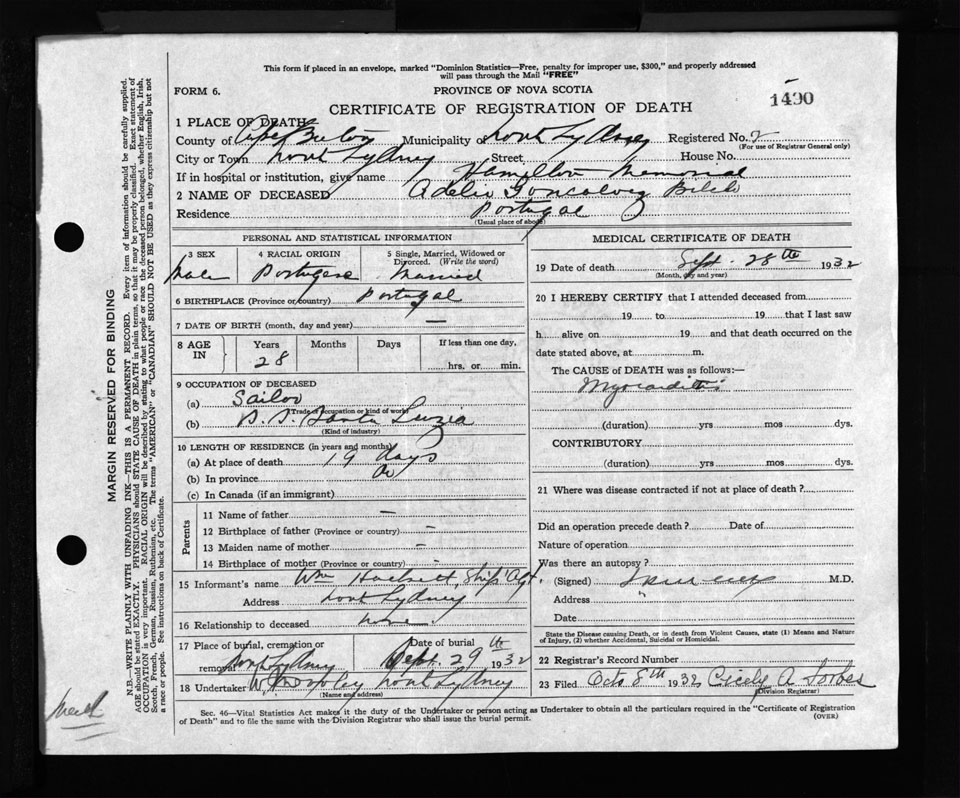 This form if placed in an envelope, marked "Dominion Statistics—Free, penalty for improper use, $300," and properly addressed
will pass through the Mail "FREE"
FORM 6.
PROVINCE OF NOVA SCOTIA
1490
CERTIFICATE OF REGISTRATION OF DEATH
1 PLACE OF DEATH
County of Cape Breton Municipality North Sydney Registered No. 2
(For use of Registrar General only)
City or Town North Sydney Street, House No.
If in hospital or institution, give name Hamilton Memorial
2 NAME OF DECEASED Adelio Goncalvez
Residence Portugal
(Usual place of abode)
PERSONAL AND STATISTICAL INFORMATION
3 SEX Male
4 RACIAL ORIGIN Portugese
5 Single, Married, Widowed or Divorced. (Write the word) Married
6 BIRTHPLACE (Province or country) Portugal
7 DATE OF BIRTH (month, day and year) —
8 AGE IN Years 28 Months Days If less than one day, hrs. or min.
9 OCCUPATION OF DECEASED
(a) Sailor
(Trade, occupation or kind of work)
(b) S.S. Santa Luzia
(Kind of industry)
10 LENGTH OF RESIDENCE (in years and months)
(a) At place of death 19 days
(b) In province
(c) In Canada (if an immigrant)
Parents
11 Name of father —
12 Birthplace of father (Province or country) —
13 Maiden name of mother —
14 Birthplace of mother (Province or country) —
15 Informant's name Wm Hackett, Ship Agt.
Address North Sydney
16 Relationship to deceased none
17 Place of burial, cremation or removal North Sydney Date of burial Sept. 29th 1932
18 Undertaker North Sydney
(Name and address)
MEDICAL CERTIFICATE OF DEATH
19 Date of death Sept. 28th 1932
(Month, day and year)
20 I HEREBY CERTIFY that I attended deceased from
19 to 19 that I last saw
h alive on 19 and that death occurred on the
date stated above, at m.
The CAUSE of DEATH was as follows:
Myocarditis
(duration) yrs mos dys.
CONTRIBUTORY
(duration) yrs mos dys.
21 Where was disease contracted if not at place of death?
Did an operation precede death? Date of
Nature of operation
Was there an autopsy?
(Signed) M.D.
Address "
Date
State the Disease causing Death, or in death from Violent Causes, state (1) Means and Nature
of Injury, (2) whether Accidental, Suicidal or Homicidal.
22 Registrar's Record Number
23 Filed Octo 8th 1932 Cicely A. Forbes
(Division Registrar)
Sec. 46—Vital Statistics Act makes it the duty of the Undertaker or person acting as Undertaker to obtain all the particulars required in the "Certificate of Registration
of Death" and to file the same with the Division Registrar who shall issue the burial permit.
(OVER)
MARGIN RESERVED FOR BINDING
N.B.—WRITE PLAINLY WITH UNFADING INK—THIS IS A PERMANENT RECORD. Every item of information should be carefully supplied.
AGE should be stated EXACTLY. PHYSICIANS should STATE CAUSE OF DEATH in plain terms, so that it may be properly classified. Exact statement of
OCCUPATION is very important. RACIAL ORIGIN will be described by stating to what people or race the deceased person belonged, whether English, Irish,
Scotch, French, German, Russian, Ruthenian, etc. The terms "AMERICAN" or "CANADIAN" SHOULD NOT BE USED as they express citizenship but not
a race or people. See instructions on back of Certificate.